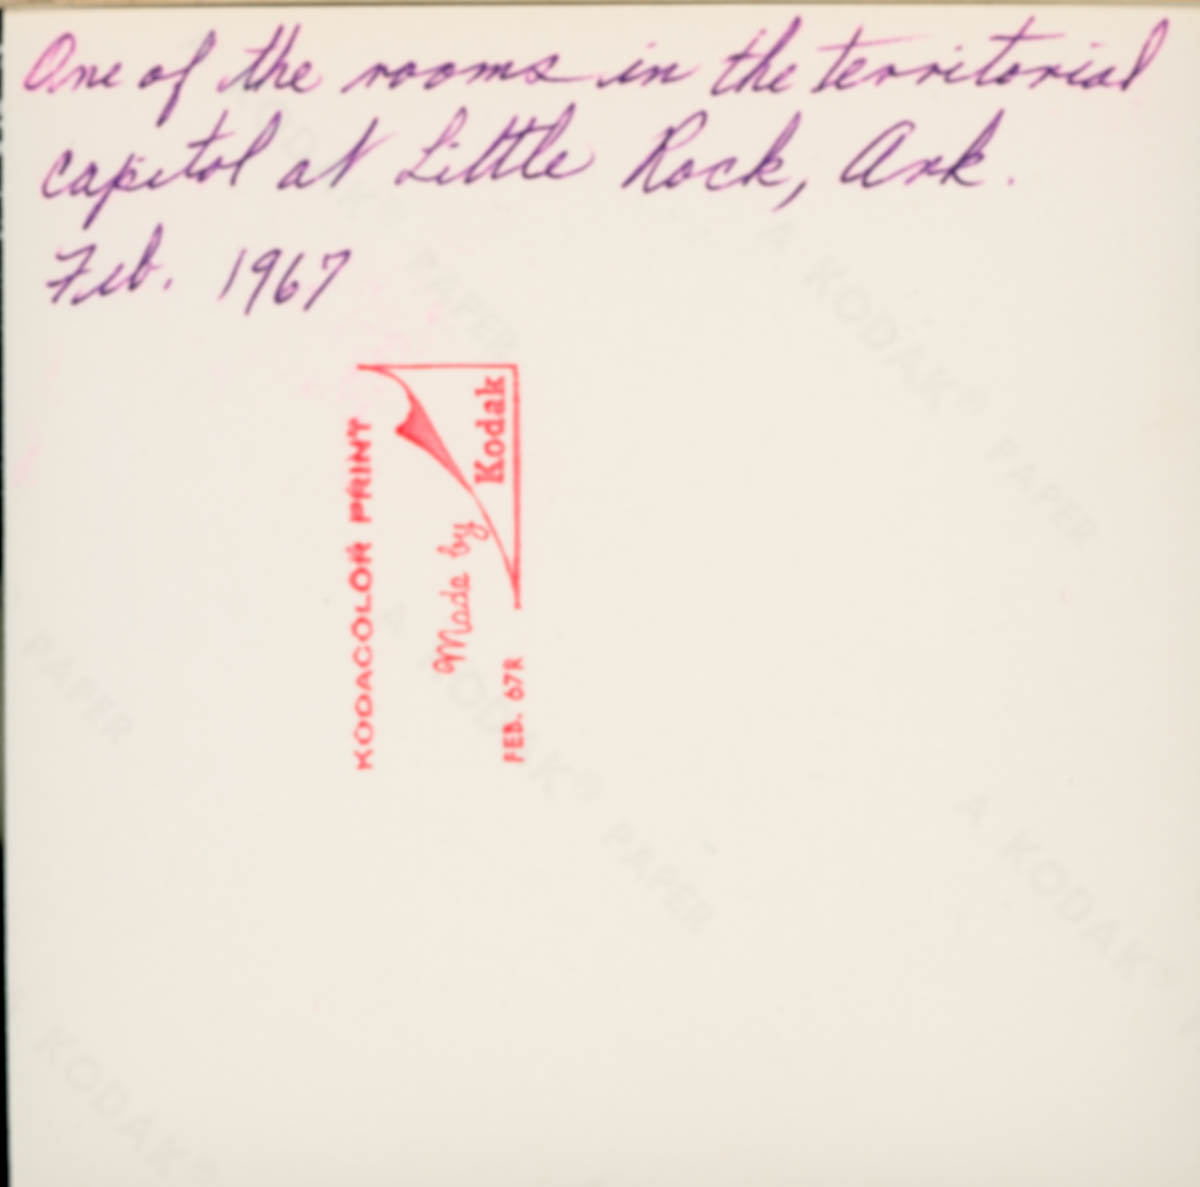 One of the rooms in the territorial
capitol at Little Rock, Ark.
Feb. 1967
KODACOLOR PRINT
Made by
Kodak
FEB. 67R
A KODAK® PAPER
A KODAK® PAPER
PAPER
A KODAK® PAPER
A KODAK®
KODAK®